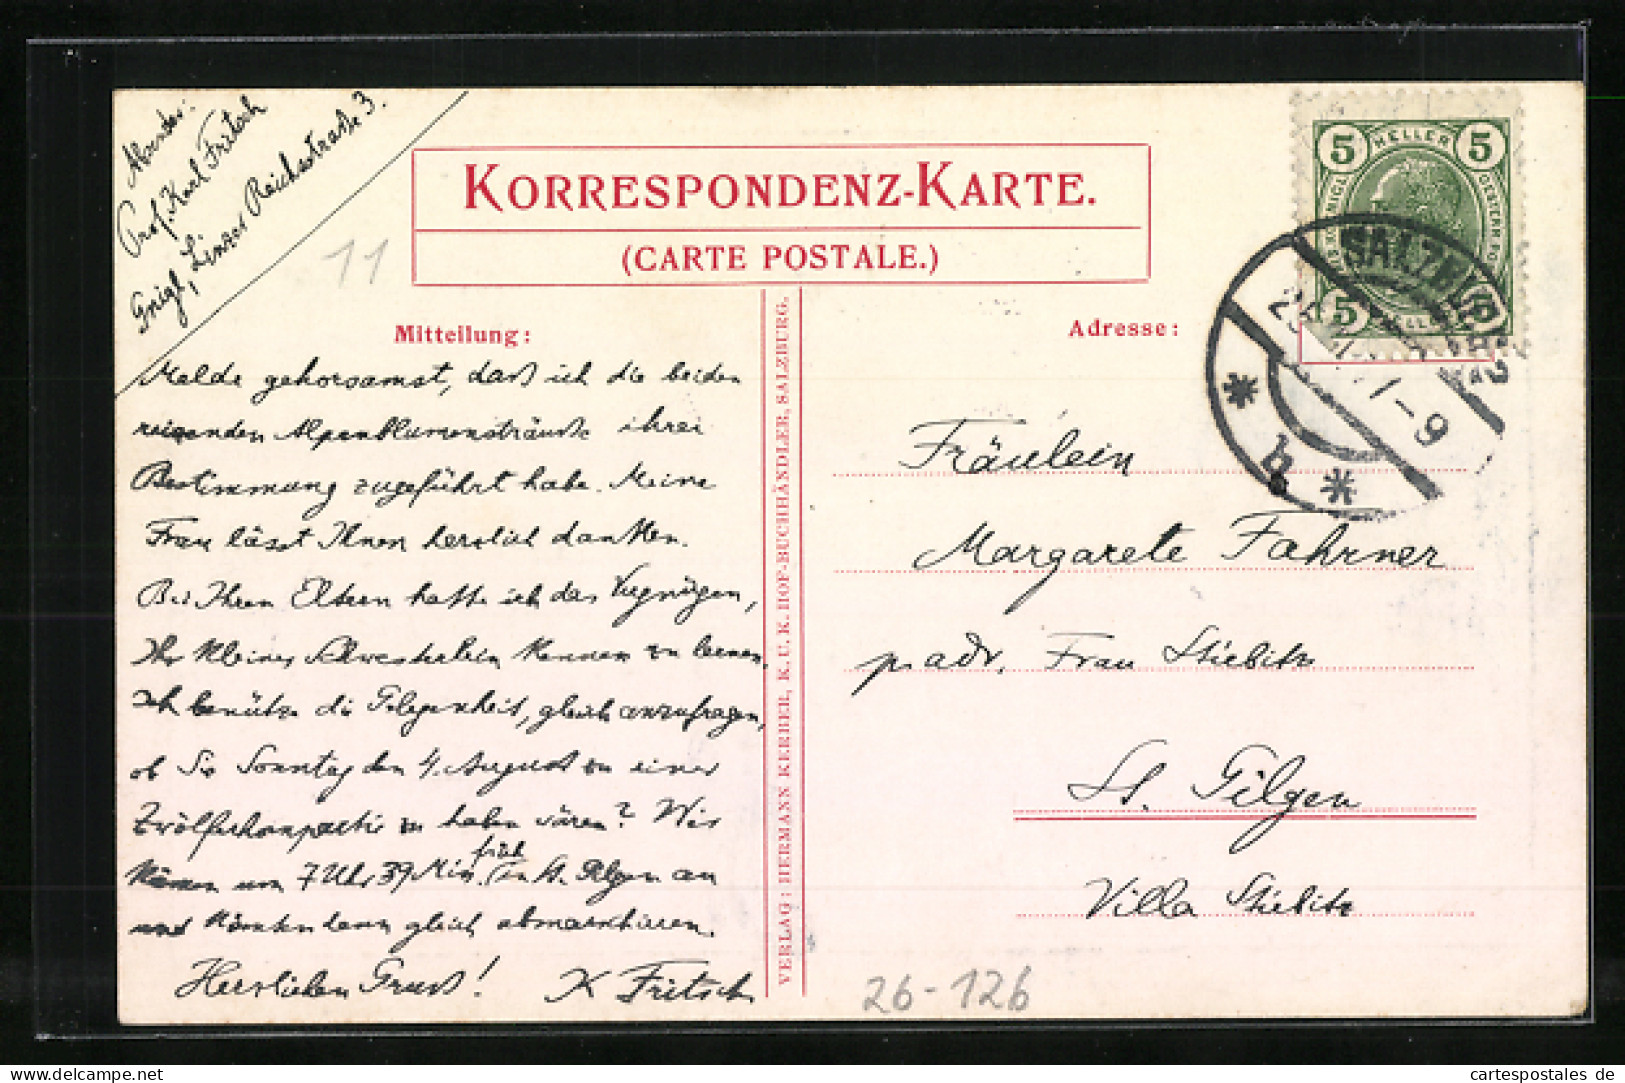 Absender:
Prof. Karl Fritsch
Gnigl, Linzer Reichsstraße 3.
11
KORRESPONDENZ-KARTE.
(CARTE POSTALE.)
5 HELLER 5
5 HELLER 5
SALZBURG 2
7-9
* b *
Mitteilung:
Melde gehorsamst, daß ich die beiden
reizenden Alpenblumensträuße ihrer
Bestimmung zugeführt habe. Meine
Frau lässt Ihnen herzlich danken.
Bei Ihren Eltern hatte ich das Vergnügen,
Ihr kleines Schwesterlein kennen zu lernen.
Ich benütze die Gelegenheit, gleich anzufragen,
ob Sie Sonntag den 4. August zu einer
Zwölferhornpartie zu haben wären? Wir
kämen um 7 Uhr 39 Min. früh in St. Gilgen an
und könnten dann gleich abmarschieren.
Herzlichen Gruß! K Fritsch
VERLAG: HERMANN KERBER, K. U. K. HOF-BUCHHÄNDLER, SALZBURG.
Adresse:
Fräulein
Margarete Fahrner
p. adr. Frau Stiebitz
St. Gilgen
Villa Stiebitz
26-126
cartespostales de